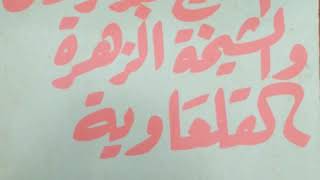 والشيخة الزهرة
القلعاوية